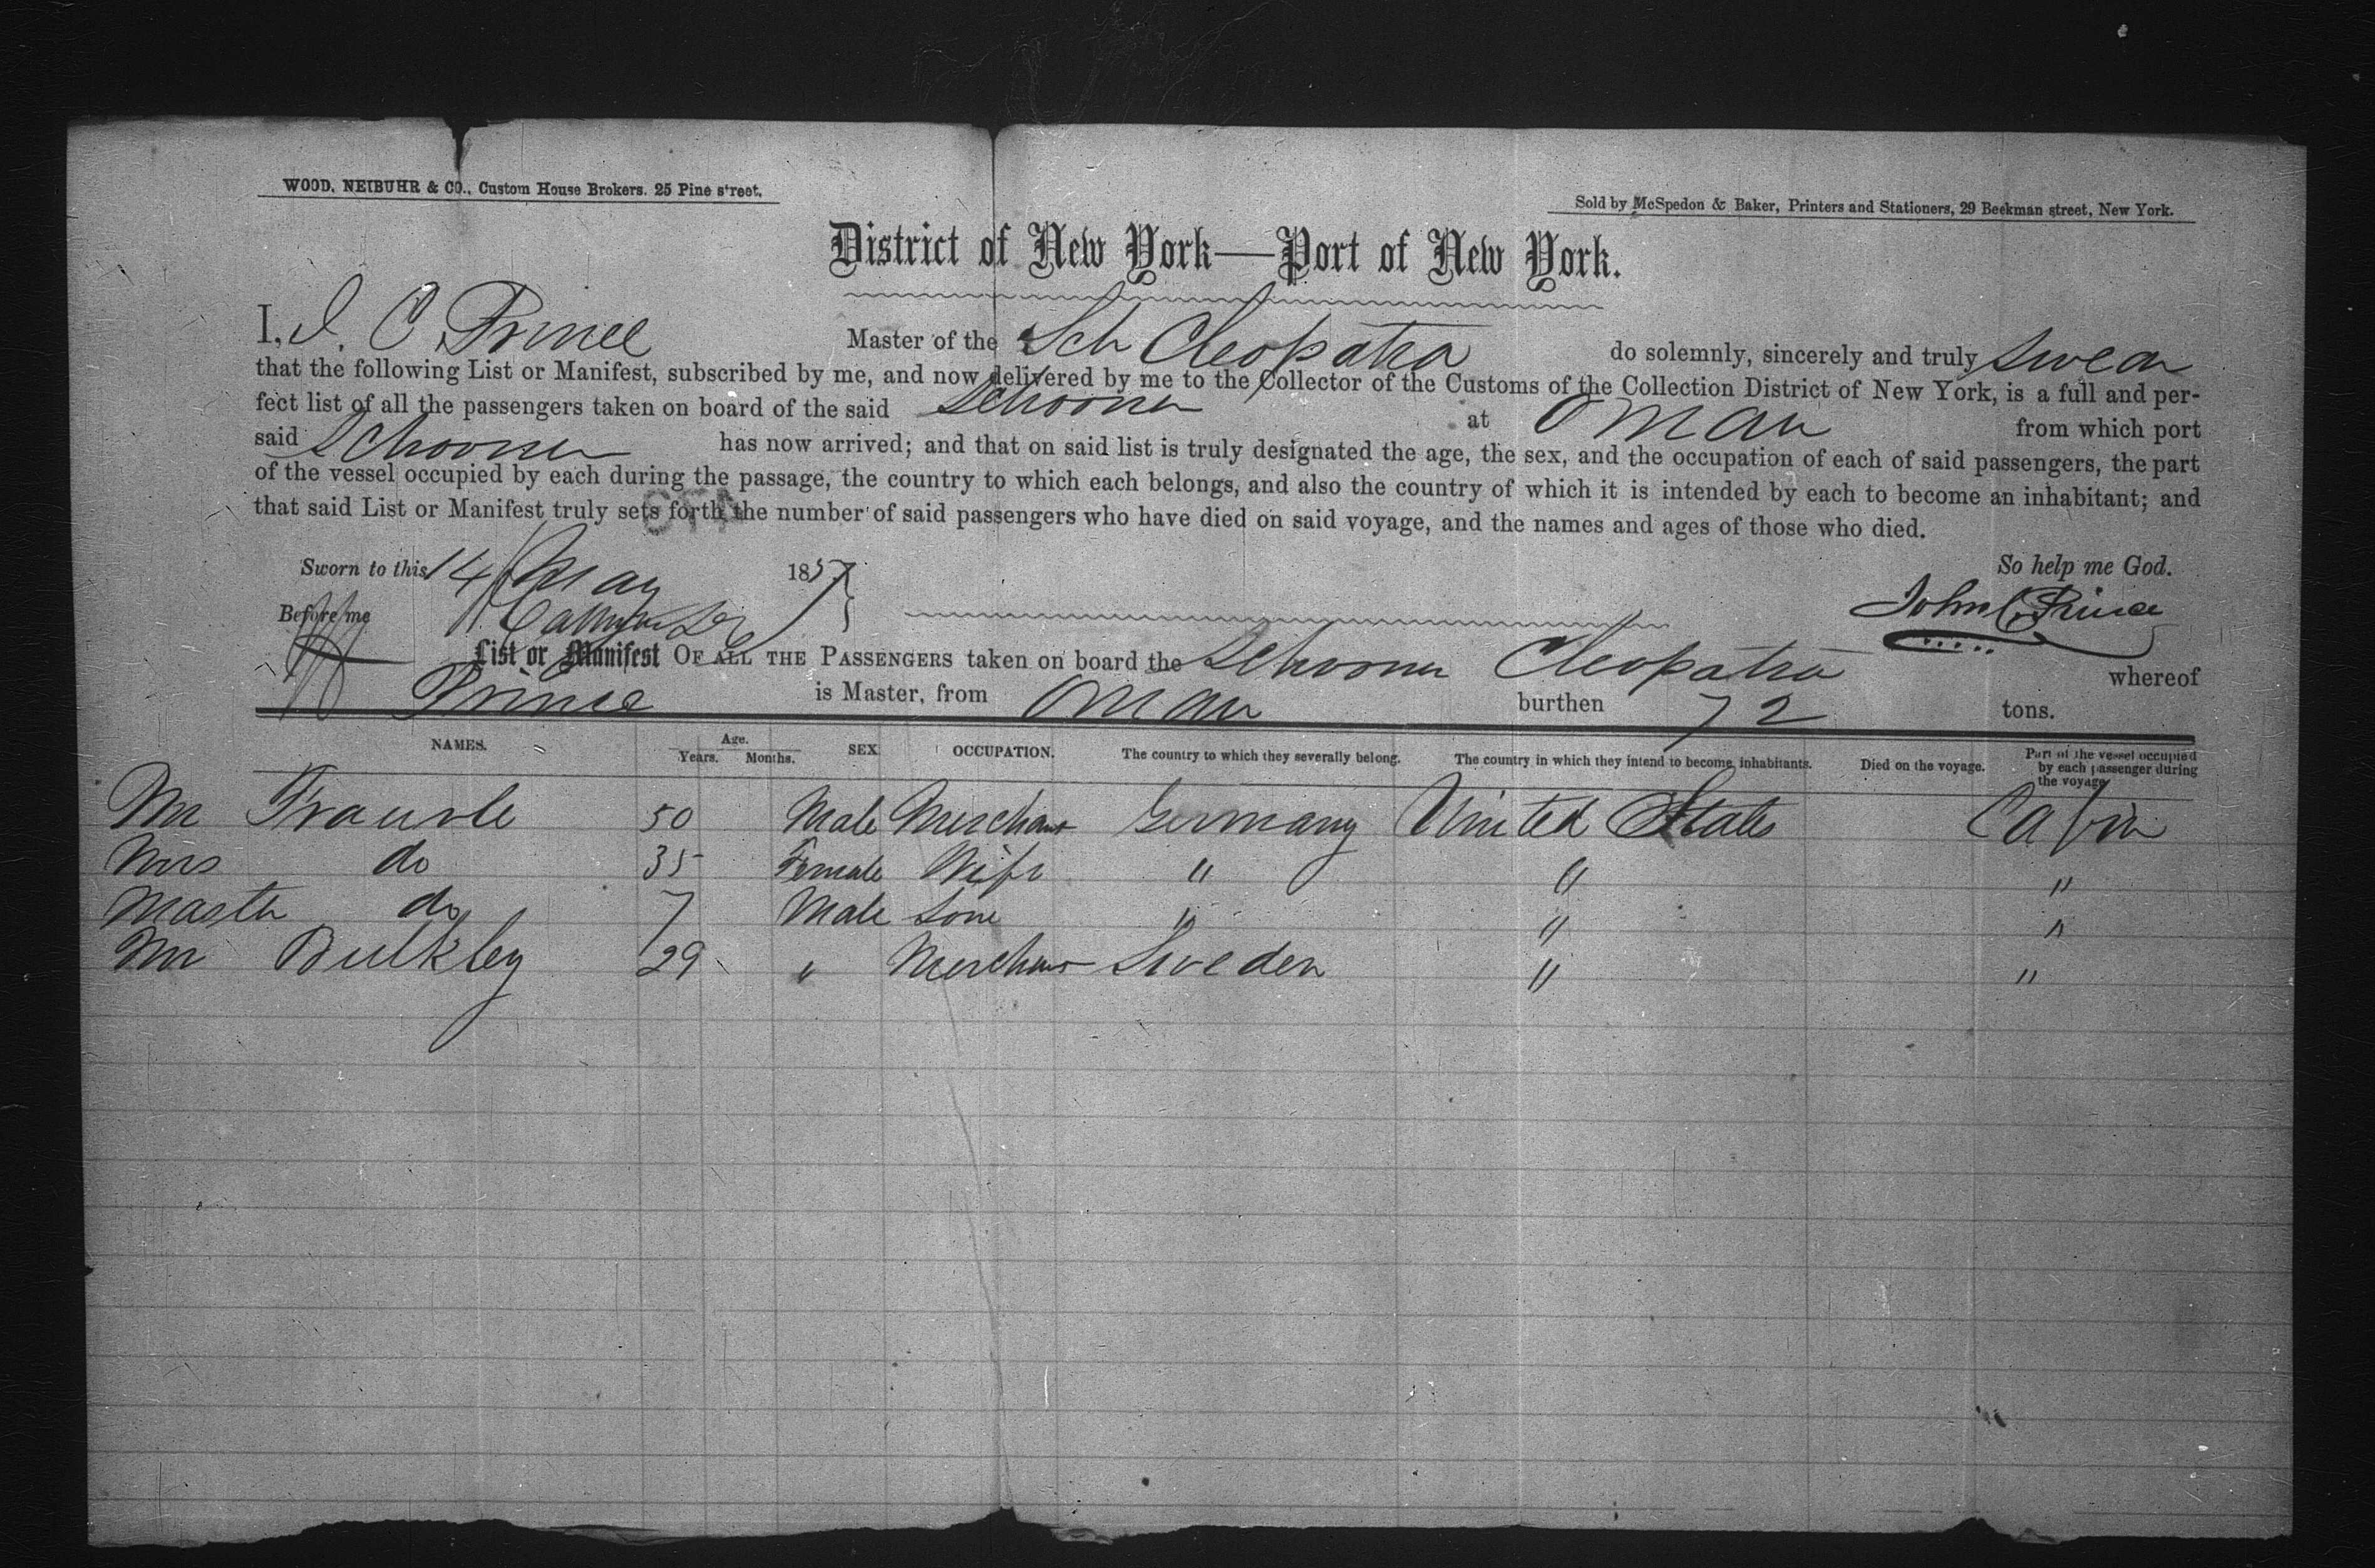 WOOD, NEIBUHR & CO., Custom House Brokers. 25 Pine street.
Sold by McSpedon & Baker, Printers and Stationers, 29 Beekman street, New York.
District of New York—Port of New York.
I, J. C Prince Master of the Sch Cleopatra do solemnly, sincerely and truly swear
that the following List or Manifest, subscribed by me, and now delivered by me to the Collector of the Customs of the Collection District of New York, is a full and per-
fect list of all the passengers taken on board of the said Schooner at Omau from which port
said Schooner has now arrived; and that on said list is truly designated the age, the sex, and the occupation of each of said passengers, the part
of the vessel occupied by each during the passage, the country to which each belongs, and also the country of which it is intended by each to become an inhabitant; and
that said List or Manifest truly sets forth the number of said passengers who have died on said voyage, and the names and ages of those who died.
Sworn to this 14 May 1857 So help me God.
Before me John C. Prince
List or Manifest OF ALL THE PASSENGERS taken on board the Schooner Cleopatra whereof
Prince is Master, from Omau burthen 72 tons.
NAMES. Age. Years. Months. SEX OCCUPATION. The country to which they severally belong. The country in which they intend to become inhabitants. Died on the voyage. Part of the vessel occupied by each passenger during the voyage
Mr 50 Male Merchant Germany United States Cabin
Mrs do 35 Female Wife " " "
Master do 7 Male Sone " " "
Mr Bulkley 29 " Merchant Sweden " "